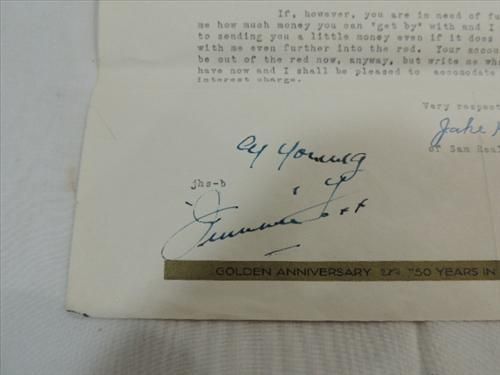 If, however, you are in need of fu
me how much money you can "get by" with and I
to sending you a little money even if it does
with me even further into the red. Your accou
be out of the red now, anyway, but write me wh
have now and I shall be pleased to accomodate
interest charge.
Very respect
Jake
of Sam Houl
Cy Young
jhs-b
Jimmie Foxx
GOLDEN ANNIVERSARY "50 YEARS IN